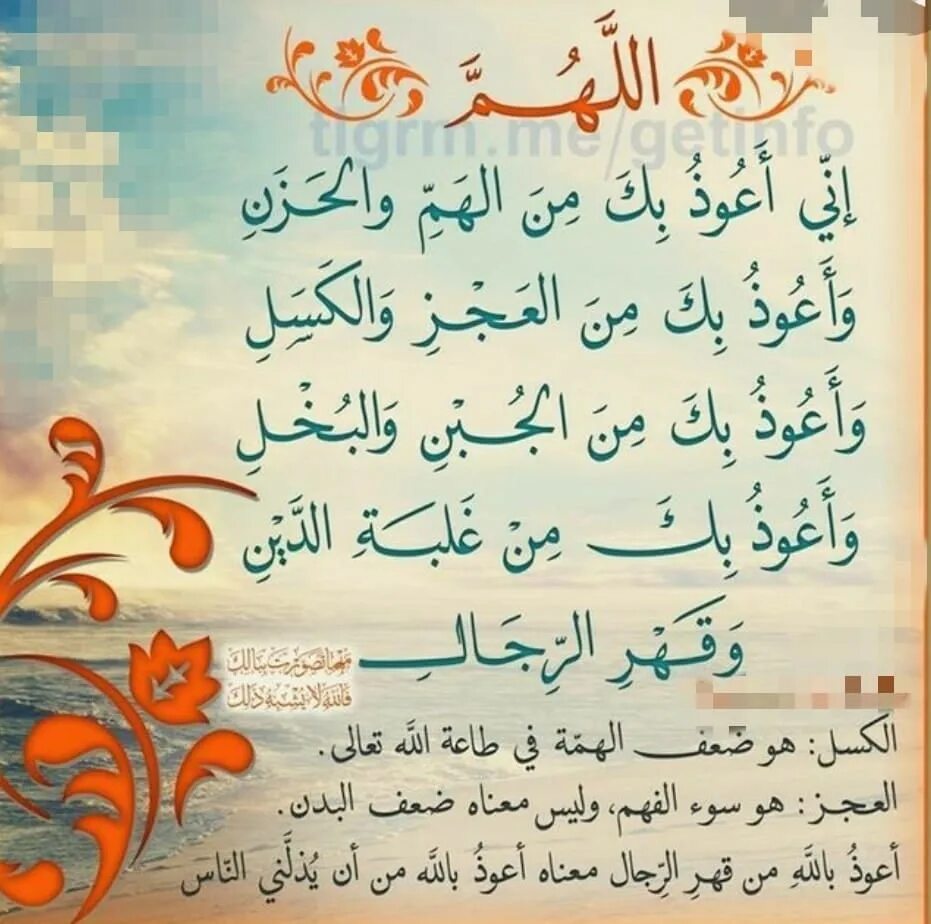 اللَّهُمَّ
tlgrm.me/getinfo
إنِّي أَعُوذُ بِكَ مِنَ الهَمِّ والحَزَنِ
وَأَعُوذُ بِكَ مِنَ العَجْزِ وَالكَسَلِ
وَأَعُوذُ بِكَ مِنَ الجُبْنِ وَالبُخْلِ
وَأَعُوذُ بِكَ مِنْ غَلبَةِ الدَّيْنِ
وَقَهْرِ الرِّجَالِ
مهما تصورت ببالك
فالله لا يشبه ذلك
الكسل: هو ضعف الهمّة في طاعة الله تعالى.
العجز: هو سوء الفهم، وليس معناه ضعف البدن.
أعوذُ باللَّهِ من قهرِ الرِّجال معناه أعوذُ باللَّه من أن يُذلَّني النّاس